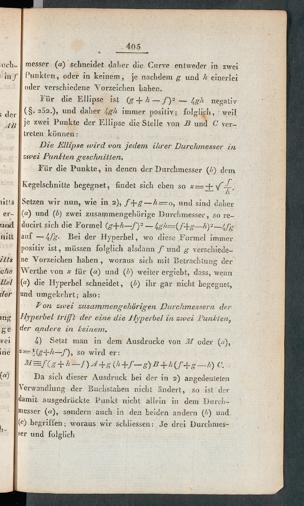 405
messer (a) schneidet daher die Curve entweder in zwei
Punkten, oder in keinem, je nachdem g und h einerlei
oder verschiedene Vorzeichen haben.
Für die Ellipse ist (g+h—f)² — 4gh negativ
(§. 252.), und daher 4gh immer positiv; folglich, weil
je zwei Punkte der Ellipse die Stelle von B und C ver-
treten können:
Die Ellipse wird von jedem ihrer Durchmesser in
zwei Punkten geschnitten.
Für die Punkte, in denen der Durchmesser (b) dem
Kegelschnitte begegnet, findet sich eben so x=±√f/h.
Setzen wir nun, wie in 2), f+g—h=0, und sind daher
(a) und (b) zwei zusammengehörige Durchmesser, so re-
ducirt sich die Formel (g+h—f)²—4gh=(f+g—h)²—4fg
auf —4fg. Bei der Hyperbel, wo diese Formel immer
positiv ist, müssen folglich alsdann f und g verschiede-
ne Vorzeichen haben, woraus sich mit Betrachtung der
Werthe von x für (a) und (b) weiter ergiebt, dass, wenn
(a) die Hyperbel schneidet, (b) ihr gar nicht begegnet,
und umgekehrt; also:
Von zwei zusammengehörigen Durchmessern der
Hyperbel trifft der eine die Hyperbel in zwei Punkten,
der andere in keinem.
4) Setzt man in dem Ausdrucke von M oder (a),
so wird er:
M≡f(g+h—f)A+g(h+f—g)B+h(f+g—h)C.
Da sich dieser Ausdruck bei der in 2) angedeuteten
Verwandlung der Buchstaben nicht ändert, so ist der
damit ausgedrückte Punkt nicht allein in dem Durch-
messer (a), sondern auch in den beiden andern (b) und
(c) begriffen; woraus wir schliessen: Je drei Durchmes-
ser und folglich